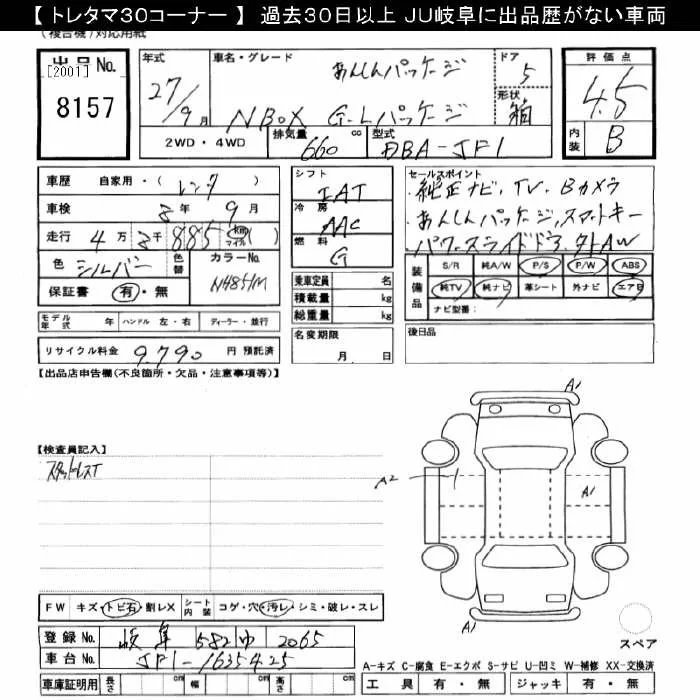 【 トレタマ30コーナー 】 過去30日以上 JU岐阜に出品歴がない車両
(複合機)対応用紙
出品 No.
[2001]
8157
年式
27/9月
車名・グレード
あんしんパッケージ
NBOX G-Lパッケージ
ドア
5
形状
箱
評価点
4.5
内装
B
2WD ・ 4WD
排気量
660 cc
型式
DBA-JF1
車歴 自家用・( レンタ )
車検 年 9月
走行 4万 3千 885 km マイル
色 シルバー 色替 カラーNo. NH851M
保証書 有・無
シフト
IAT
冷房
AAC
燃料
G
乗車定員 名
積載量 kg
総重量 kg
名変期限
月 日
セールスポイント
純正ナビ, TV, Bカメラ
あんしんパッケージ, スマートキー
パワースライドドア, 外AW
装備品 S/R 純A/W P/S P/W ABS
純TV 純ナビ 革シート 外ナビ エアB
ナビ型番:
後日品
モデル年式 年 ハンドル 左・右 ディーラー・並行
リサイクル料金 9.790 円 預託済
【出品店申告欄(不良箇所・欠品・注意事項等)】
【検査員記入】
スタッドレスT
A1
A2
A1
A1
FW キズ・トビ石・割レX シート内装 コゲ・穴・汚レ・シミ・破レ・スレ
登録 No. 岐阜 582 ゆ 2065
車台 No. JF1-1635425
車庫証明用 長さ cm 幅 cm 高さ cm
スペア
A-キズ C-腐食 E-エクボ S-サビ U-凹ミ W-補修 XX-交換済
工具 有・無 ジャッキ 有・無